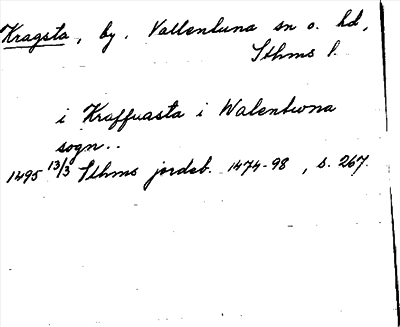 Kragsta, by. Vallentuna sn o. hd,
Sthms l.
i Kraffuasta i Walentwna
sogn..
1495 13/3 Sthms jordeb. 1474-98, s. 267.